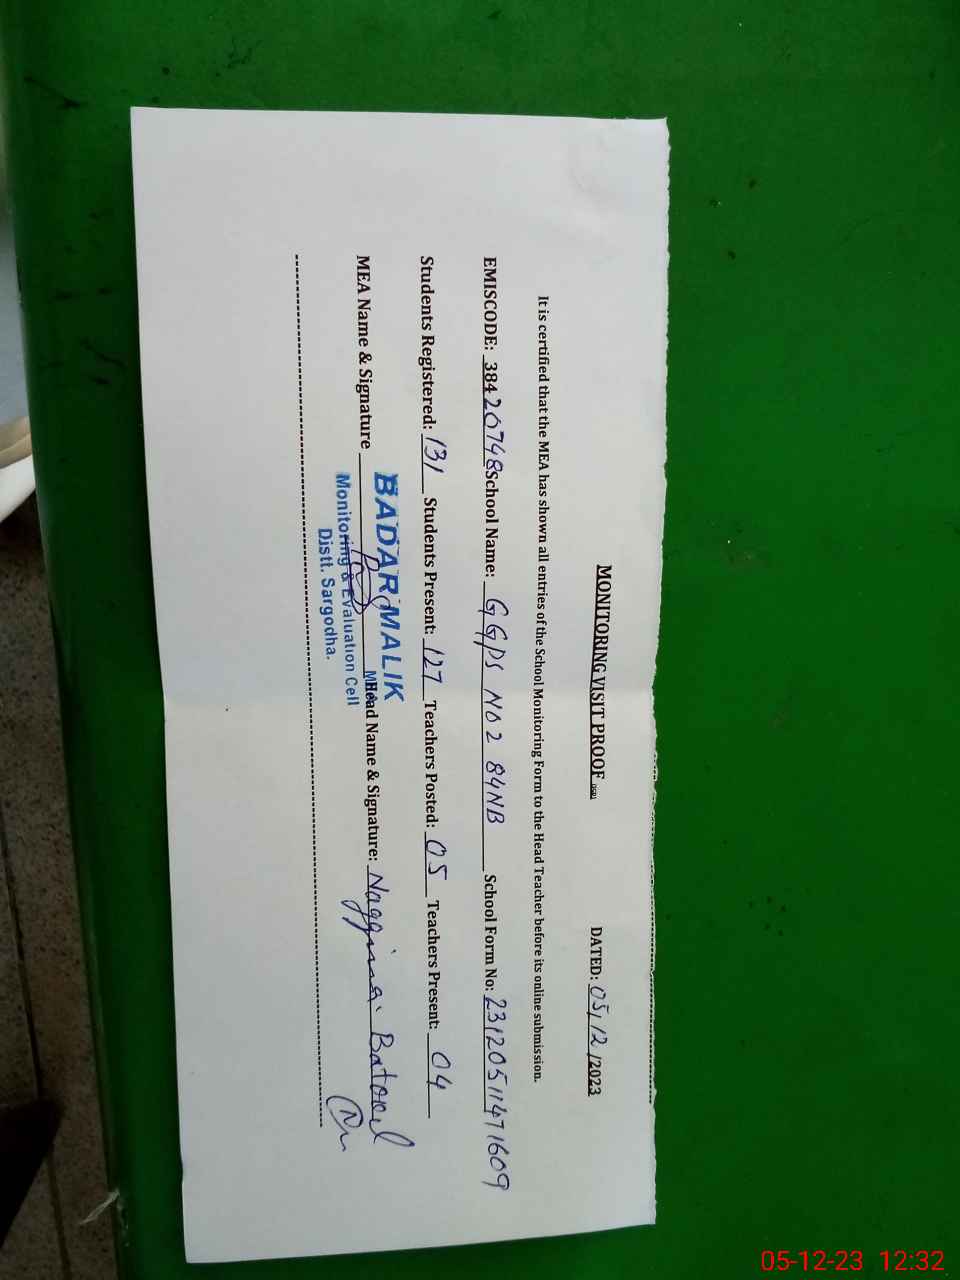 MONITORING VISIT PROOF
DATED: 05/12/2023
It is certified that the MEA has shown all entries of the School Monitoring Form to the Head Teacher before its online submission.
EMISCODE: 38420748 School Name: GGPS NO2 84NB School Form No: 23120511471609
Students Registered: 131 Students Present: 127 Teachers Posted: 05 Teachers Present: 04
MEA Name & Signature Head Name & Signature: Naggina Batool
BADAR MALIK
MEA
Monitoring & Evaluation Cell
Distt. Sargodha.
05-12-23 12:32